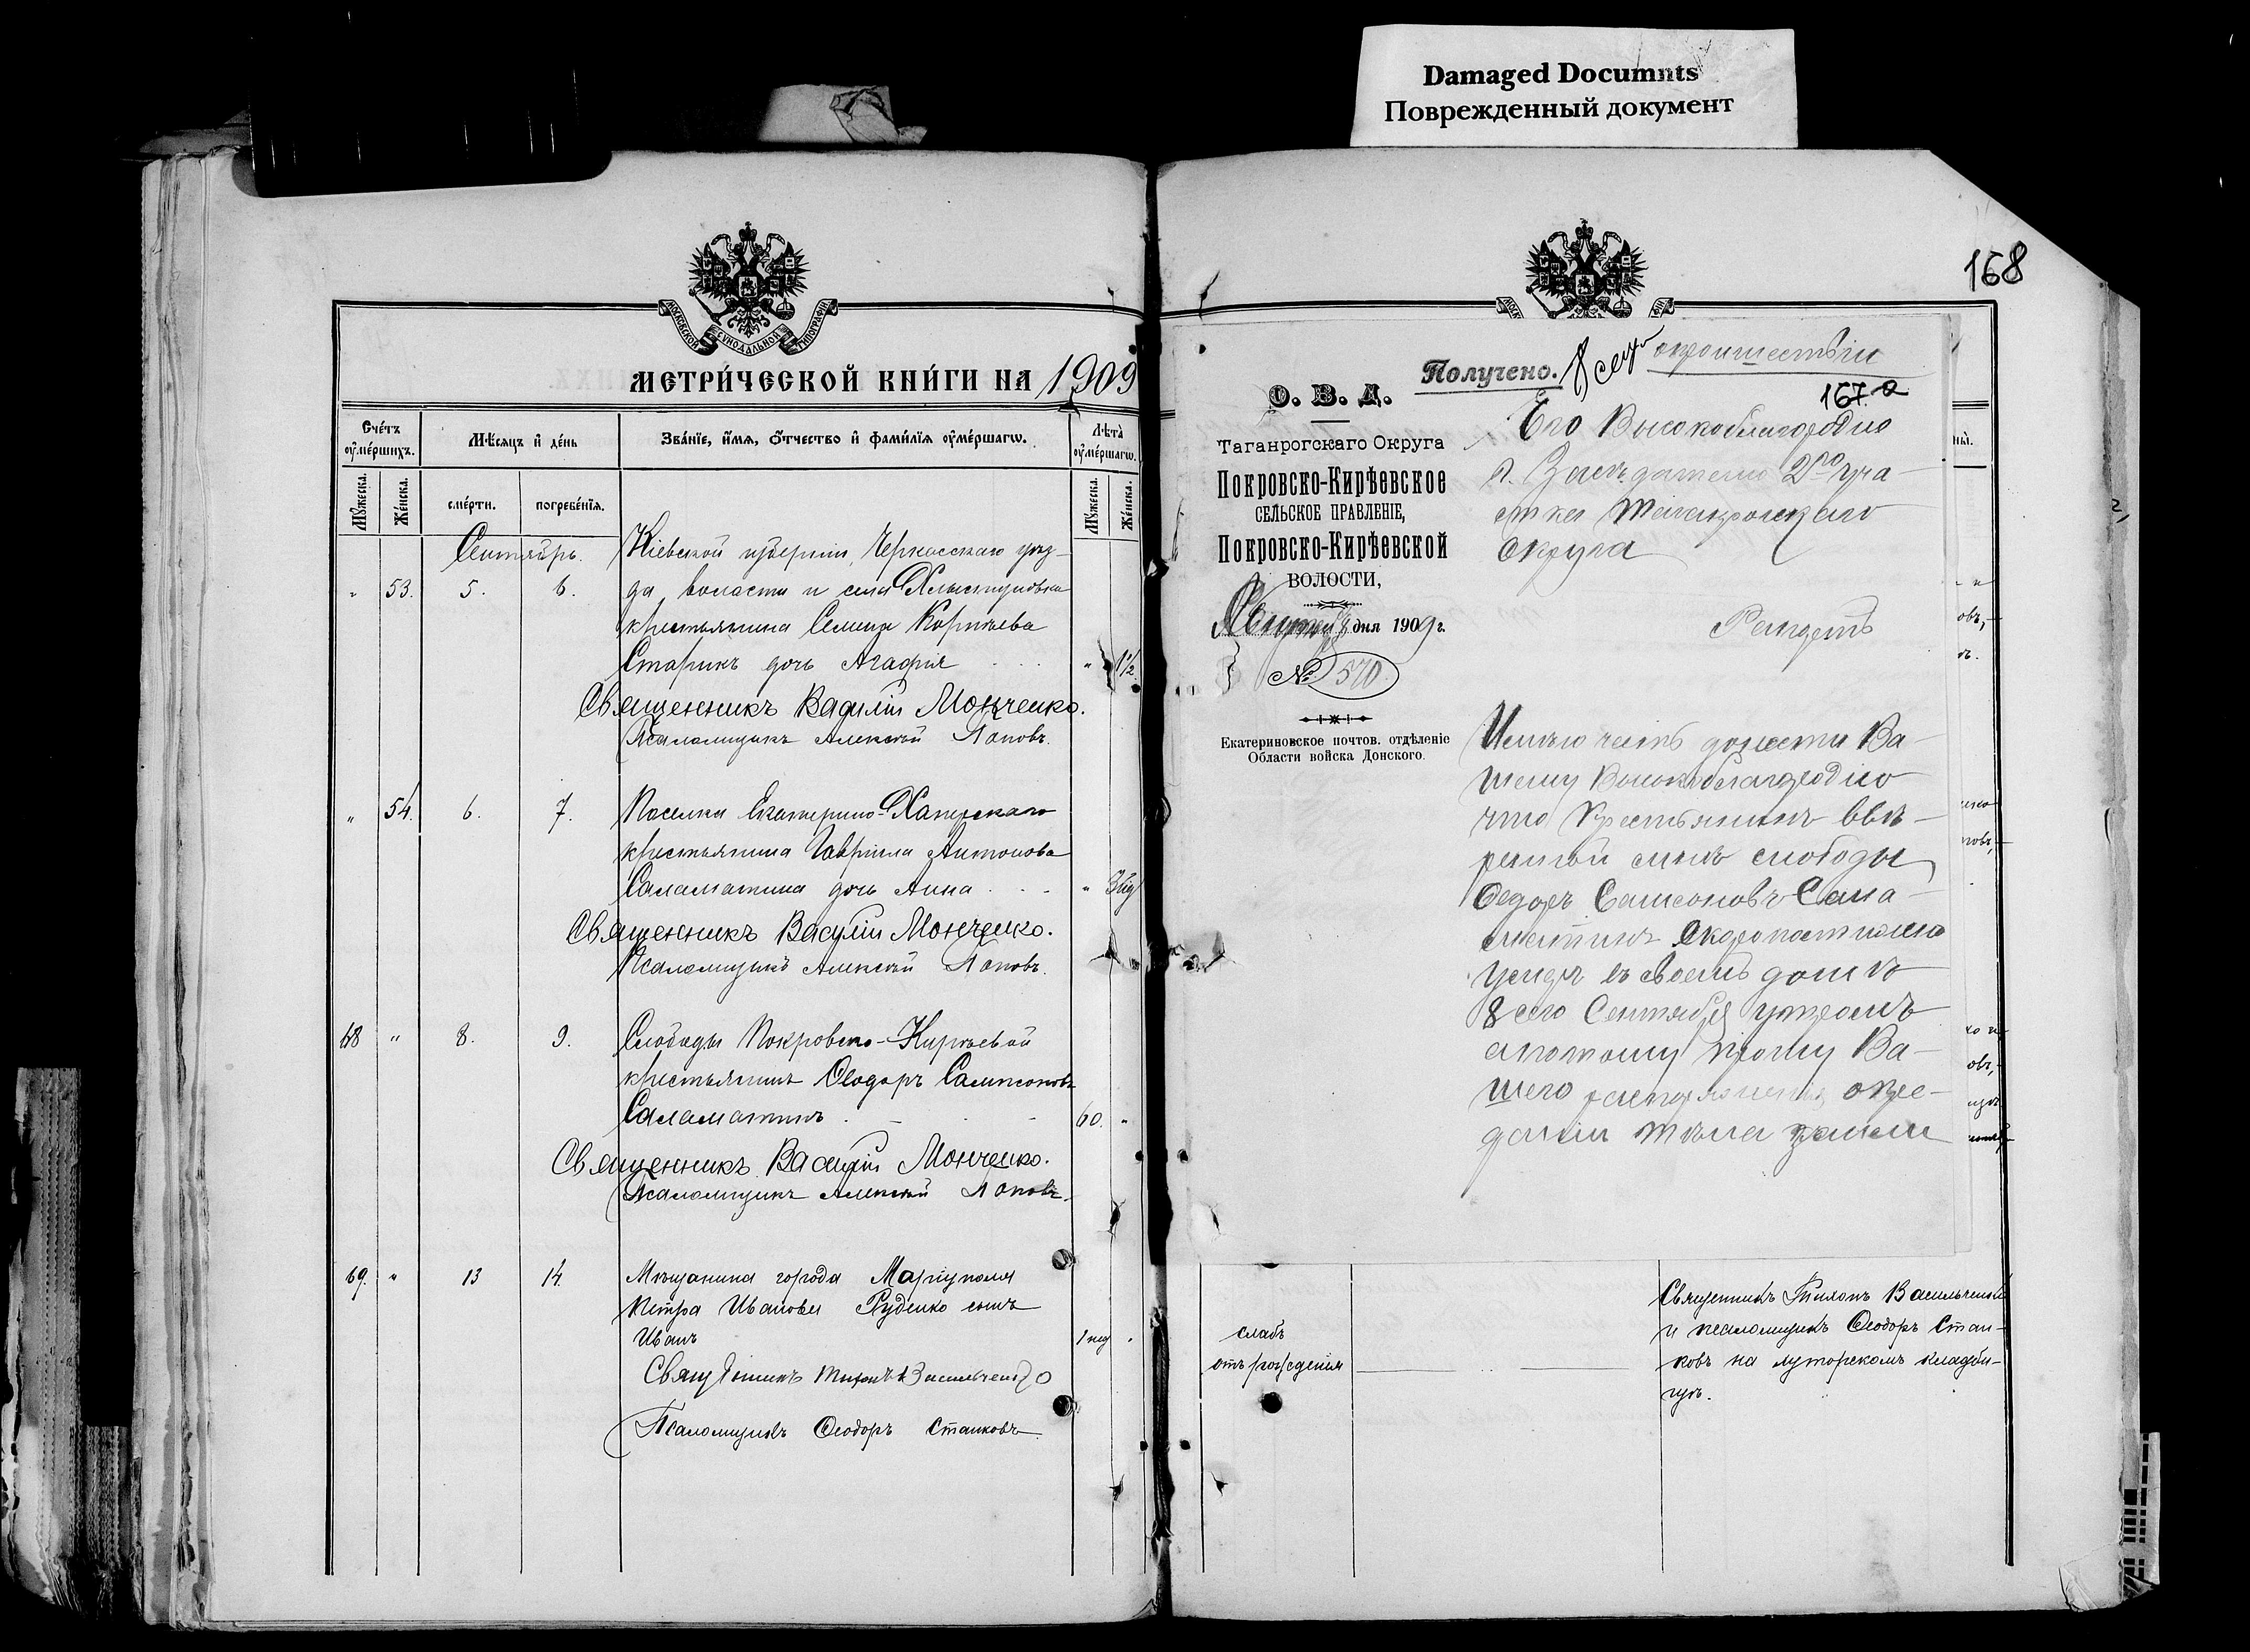 Damaged Documnts
Поврежденный документ
МОСКОВСКОЙ СѴНОДАЛЬНОЙ ТИПОГРАФІИ
МЕТРИ́ЧЕСКОЙ КНИ́ГИ НА 1909
Сче́тъ ᲂу҆ме́ршихъ.
Мѣ́сяцъ и҆ де́нь
Зва́нїе, и҆́мя, ѻ҆́тчество и҆ фами́лїя ᲂу҆ме́ршагѡ.
Лѣ́та ᲂу҆ме́ршагѡ.
Мꙋ́жеска.
Же́нска.
сме́рти.
погребе́нїя.
Мꙋ́жеска.
Же́нска.
Сентябрь.
Кіевской губерніи, Черкасскаго уѣз-
" 53. 5. 6. да волости и села Хлыстуновки
крестьянина Семена Корнѣева
Старикъ дочь Агафія " 1½
Священникъ Василій Монченко.
Псаломщикъ Алексѣй Поповъ.
" 54. 6. 7. Поселка Екатерино-Хапрскаго
крестьянина Гавріила Антонова
Саламатина дочь Анна " 3
Священникъ Василій Монченко.
Псаломщикъ Алексѣй Поповъ.
68 " 8. 9. Слободы Покровско-Кирѣевой
крестьянинъ Ѳеодоръ Сампсоновъ
Саламатинъ 60. "
Священникъ Василій Монченко.
Псаломщикъ Алексѣй Поповъ.
69. " 13 14. Мѣщанина города Маріуполя
Петра Иванова Руденко сынъ
Иванъ 1 нед "
Священникъ Тихонъ Васильченко
Псаломщикъ Ѳеодоръ Станковъ.
168
Получено. 8 сент
о происшествіи
167-а
О. В. Д.
Таганрогскаго Округа
Покровско-Кирѣевское
СЕЛЬСКОЕ ПРАВЛЕНІЕ,
Покровско-Кирѣевской
ВОЛОСТИ,
Сентября 8 дня 1909 г.
№ 570
Екатериновское почтов. отдѣленіе
Области войска Донского.
Его Высокоблагородію
г. Засѣдателю 2го уча-
стка Таганрогскаго
Округа
Рапортъ
Имѣю честь донести Ва-
шему Высокоблагородію
что крестьянинъ ввѣ-
ренной мнѣ слободы
Федоръ Самсоновъ Сала-
матинъ скоропостижно
умеръ въ своемъ домѣ
8 сего Сентября утромъ
а потому прошу Ва-
шего распоряженія о пре-
даніи тѣла земли
слабъ
отъ рожденія
Священникъ Тихонъ Васильченко
и псаломщикъ Ѳеодоръ Стан-
ковъ на хуторскомъ кладби-
щѣ.